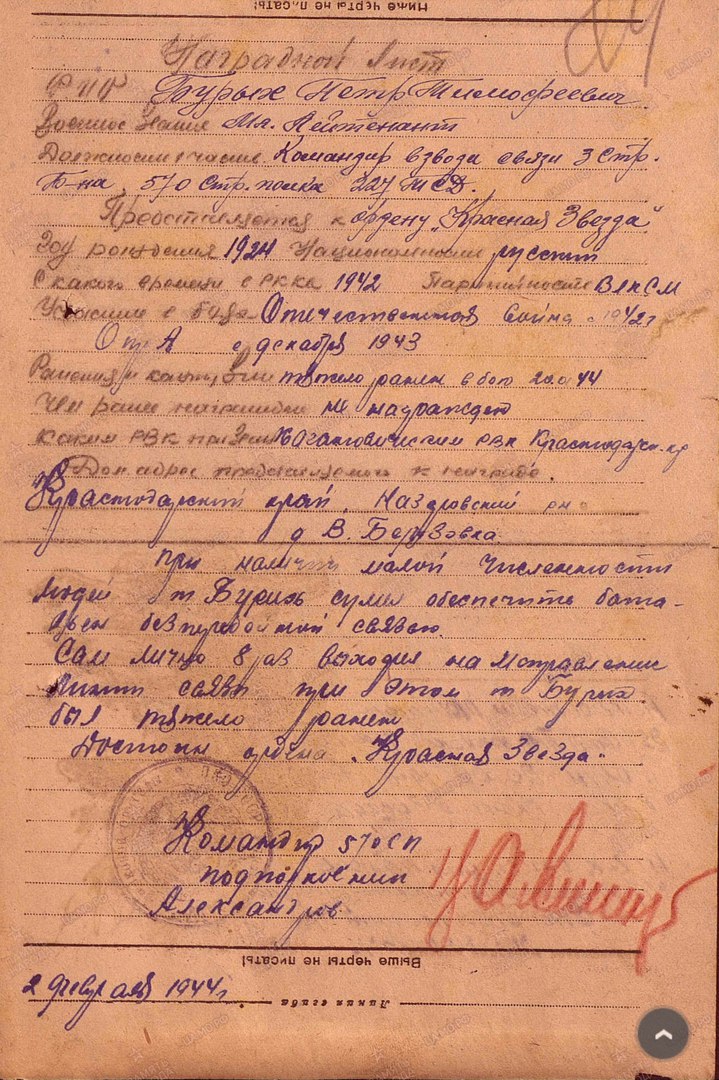 Ниже черты не писать!
Наградной лист
ФИО Бурых Петр Тимофеевич
Военное Мл. Лейтенант
Командир взвода связи 3 Стр.
Б-на, 570 стр. полка 227 ТСД.
Представляется к ордену „Красная Звезда"
Год рождения 1924 Национальность русский
С какого времени в РККА 1942 Партийность ВЛКСМ
Участие в боях Отечественная война с 1942 г
ОПА с декабря 1943
Ранения и контузии тяжело ранен в бою 44
Чем ранее награжден не награжден
Каким РВК призван Кагановическим РВК Краснодарск. кр
Дом. адрес представляемого к награде
Краснодарский край,
д В. Березовка
При наличии малой численности
людей т Бурих сумел обеспечить бата-
связью
Сам лично 8 раз выходил на исправление
линии связи при этом т Бурих
был тяжело ранен
Достоин ордена „Красная Звезда"
Командир 570 СП
подполковник
Александров
Выше черты не писать!
2 февраля 1944 г
Линия сгиба